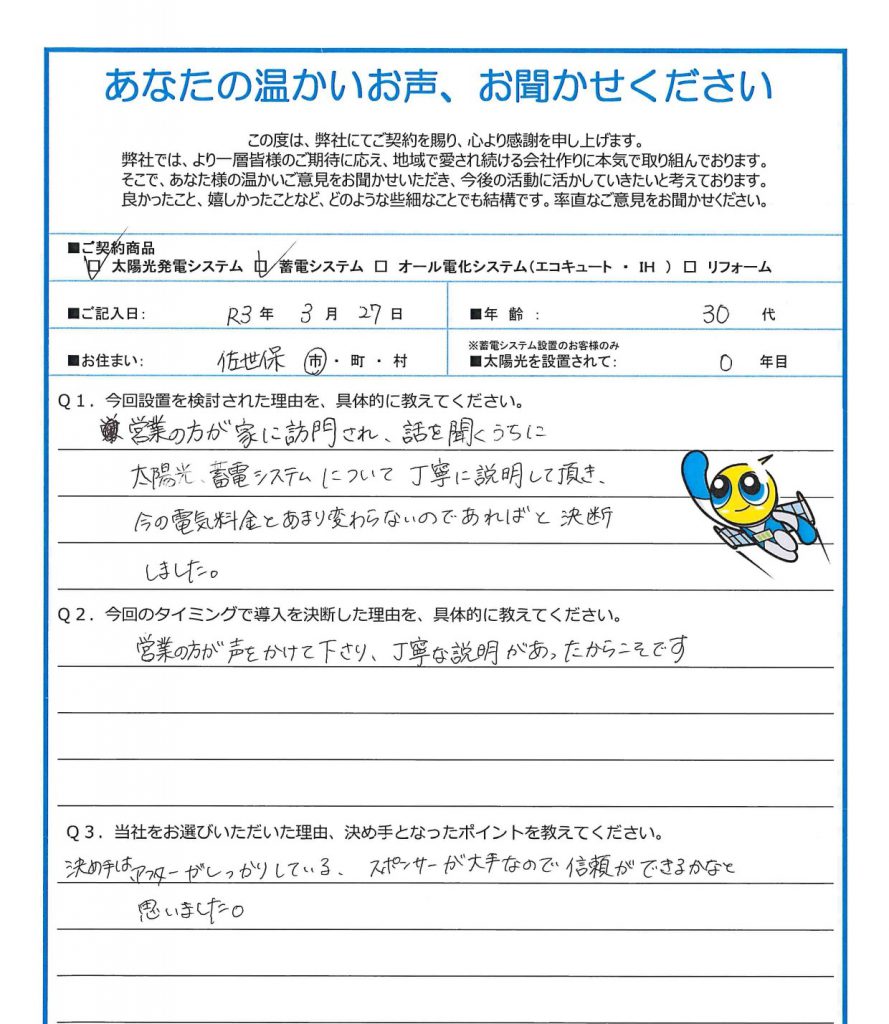 あなたの温かいお声、お聞かせください
この度は、弊社にてご契約を賜り、心より感謝を申し上げます。
弊社では、より一層皆様のご期待に応え、地域で愛され続ける会社作りに本気で取り組んでおります。
そこで、あなた様の温かいご意見をお聞かせいただき、今後の活動に活かしていきたいと考えております。
良かったこと、嬉しかったことなど、どのような些細なことでも結構です。率直なご意見をお聞かせください。
■ご契約商品
☑ 太陽光発電システム ☑ 蓄電システム □ オール電化システム(エコキュート ・ IH ) □ リフォーム
■ご記入日: R3 年 3 月 27 日
■年 齢 : 30 代
■お住まい: 佐世保 市 ・ 町 ・ 村
※蓄電システム設置のお客様のみ
■太陽光を設置されて: 0 年目
Q1. 今回設置を検討された理由を、具体的に教えてください。
営業の方が家に訪問され、話を聞くうちに
太陽光、蓄電システムについて丁寧に説明して頂き、
今の電気料金とあまり変わらないのであればと決断
しました。
Q2. 今回のタイミングで導入を決断した理由を、具体的に教えてください。
営業の方が声をかけて下さり、丁寧な説明があったからこそです
Q3. 当社をお選びいただいた理由、決め手となったポイントを教えてください。
決め手は、アフターがしっかりしている、スポンサーが大手なので信頼ができるかなと
思いました。